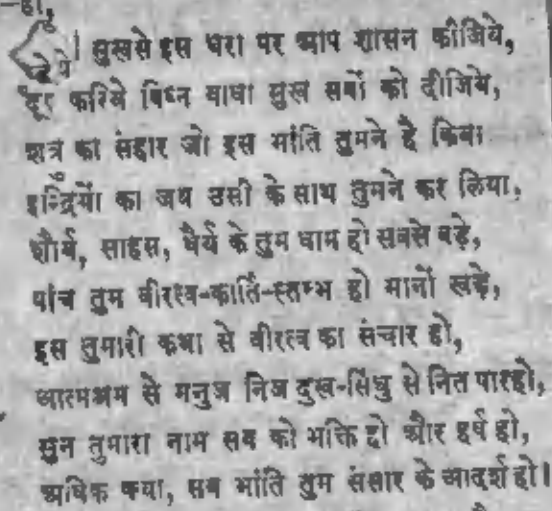 —हो,
सुखसे इस धरा पर आप शासन कीजिये,
दूर करिये विघ्न बाधा सुख सबों को दीजिये,
शत्र का संहार जो इस भांति तुमने है किया
इन्द्रियों का जय उसी के साथ तुमने कर लिया,
शौर्य, साहस, धैर्य के तुम धाम हो सबसे बड़े,
पांच तुम वीरत्व-कीर्ति-स्तम्भ हो मानों खड़े,
इस तुमारी कथा से वीरत्व का संचार हो,
आत्मश्रम से मनुज निज दुख-सिंधु से नित पारहो,
सुन तुमारा नाम सब को भक्ति हो और हर्ष हो,
अधिक क्या, सब भांति तुम संसार के आदर्श हो।